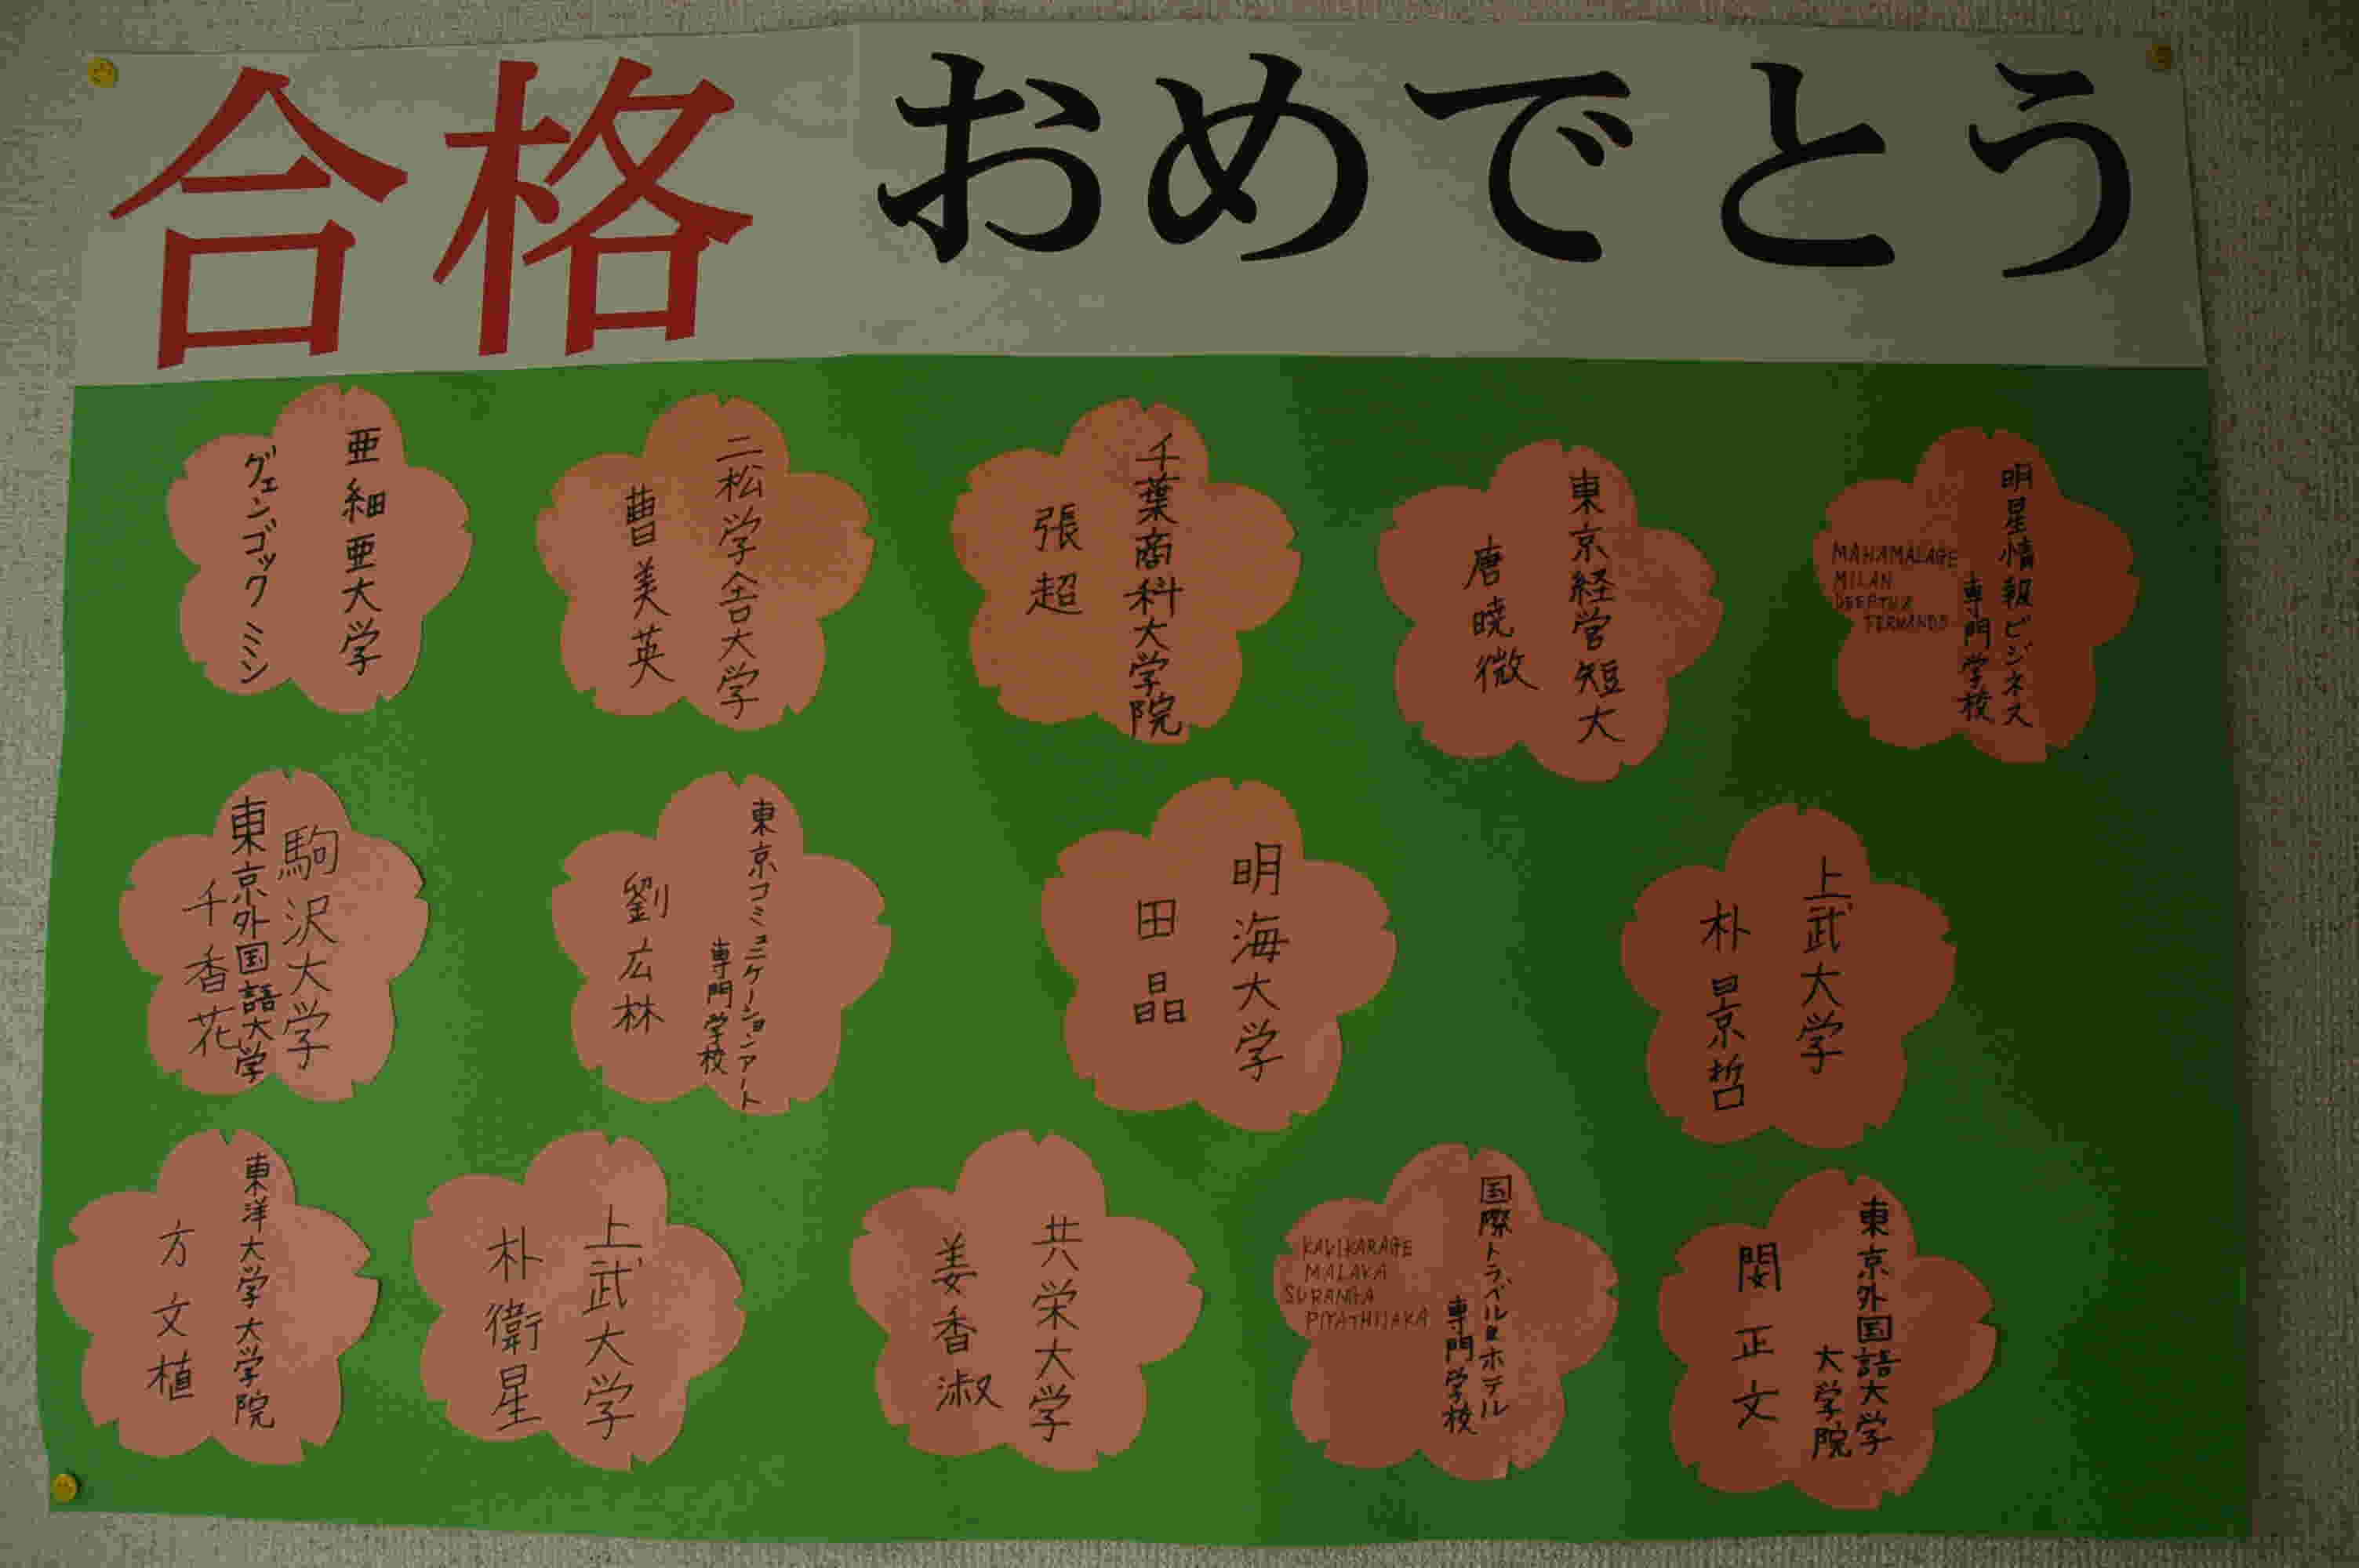 合格 おめでとう
亜細亜大学
グェンゴック ミン
二松学舎大学
曹美英
千葉商科大学院
張超
東京経営短大
唐暁微
明星情報ビジネス
専門学校
MAHAMALAGE
MILAN
FERNANDO
駒沢大学
東京外国語大学
千香花
東京コミュニケーションアート
専門学校
劉広林
明海大学
田晶
上武大学
朴景哲
東洋大学大学院
方文植
上武大学
朴衛星
共栄大学
姜香淑
国際トラベル&ホテル
専門学校
MALAKA
SURANGA
東京外国語大学
大学院
閔正文